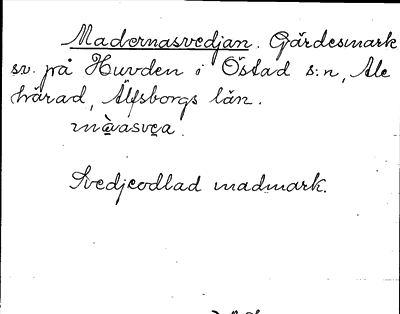 Madernasvedjan. Gärdesmark
sv. på Huvden i Östad s:n, Ale
härad, Älfsborgs län.
màasvea.
Svedjeodlad madmark.